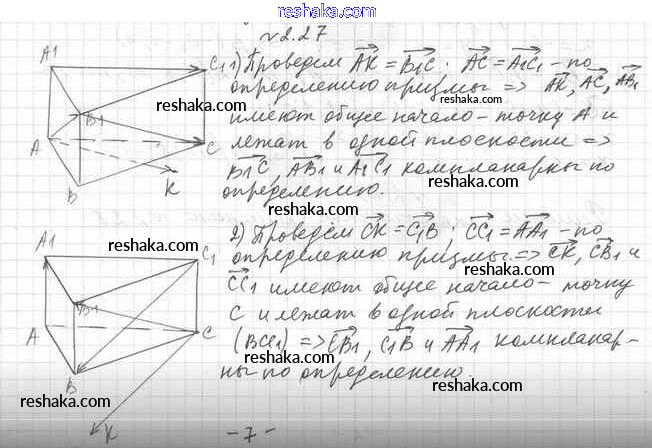 reshaka.com
№2.27
1) Проведем AK = B1C. AC = A1C1 - по
определению призмы => AK, AC, AB1
имеют общее начало - точку A и
лежат в одной плоскости =>
B1C, AB1 и A1C1 компланарны по
определению.
A1
C1
reshaka.com
B1
A
C
B
K
reshaka.com
reshaka.com
2) Проведём CK = C1B; CC1 = AA1 - по
определению призмы => CK, CB1 и
CC1 имеют общее начало - точку
C и лежат в одной плоскости
(BCC1) => CB1, C1B и AA1 компланар-
ны по определению.
A1
C1
reshaka.com
B1
A
C
B
K
reshaka.com
reshaka.com
reshaka.com
reshaka.com
- 7 -
reshaka.com